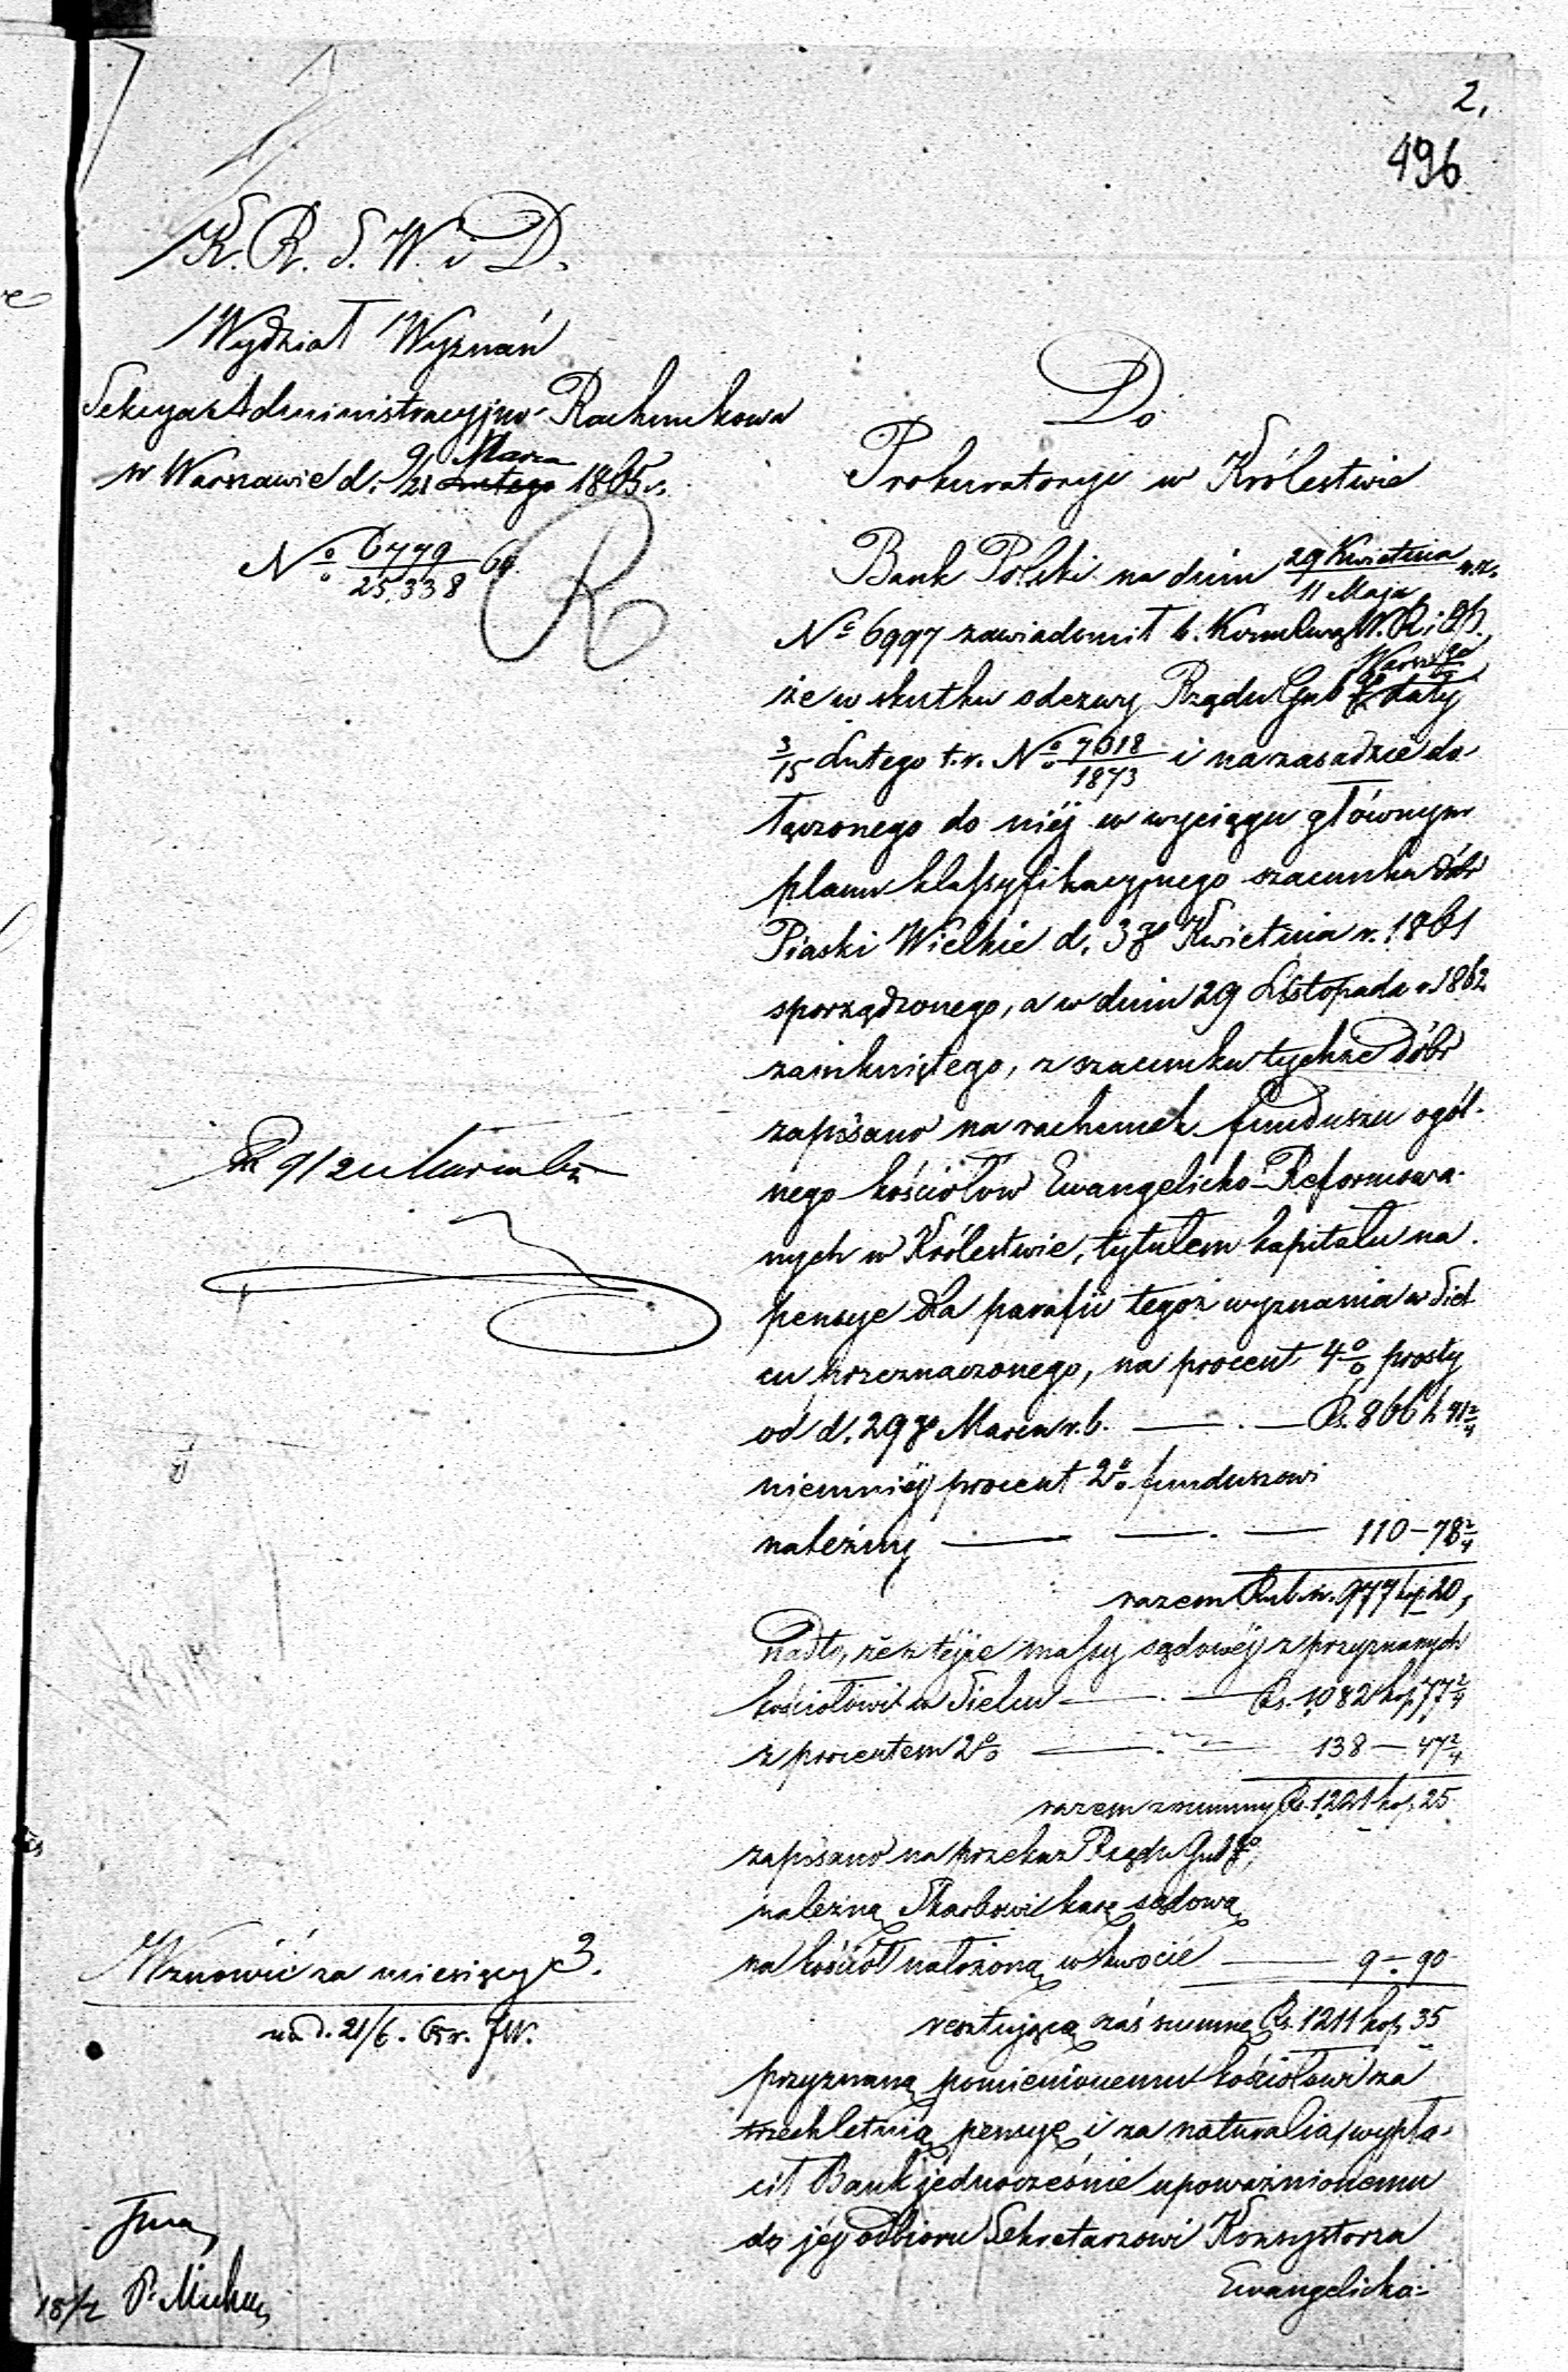 2.
496
K. R. S. W. i D.
Wydział Wyznań
Sekcya Administracyjno-Rachunkowa
w Warszawie d. 9/21 Marca Lutego 1865 r.
№ 6779/25,338 64
R
Do
Prokuratoryi w Królestwie
Bank Polski na dniu 29 Kwietnia / 11 Maja
№ 6997 zawiadomił b. W. R. i O. P.
że w skutku odezwy Rządu Gub. Warszgo daty
3/15 Lutego t. r. № 7618/1873 i na zasadzie do-
łączonego do niéj w wyciągu głównym
planu klassyfikacyjnego szacunku dóbr
Piaski Wielkie d. 3go Kwietnia r. 1861
sporządzonego, a w dniu 29 Listopada r. 1862
zamkniętego, z szacunku tychże dóbr
zapisano na rachunek funduszu ogól-
nego kościołów Ewangelicko-Reformowa-
nych w Królestwie, tytułem kapitału na
pensye dla parafii tegoż wyznania w Siel
cu przeznaczonego, na procent 4% prosty
od d. 29go Marca r. b. — . — Rs. 866 k. 41 2/4
niemniéj procent 2% funduszowi
należny — — . — 110 — 78 2/4
razem Rub. sr. 977 kop. 20,
Nadto, że z téjże massy sądowéj z przyznanych
kościołowi w Sielcu — . — Rs. 1082 kop. 77 2/4
z procentem 2% — . — 138 — 47 2/4
razem z summy Rs. 1221 kop. 25
zapisano na przekaz Rządu Gubgo,
należną Skarbowi karę sądową
na kościół nałożoną w kwocie — 9 — 90
resztującą zaś summę Rs. 1211 kop. 35
przyznaną pomienionemu kościołowi za
trzechletnią pensyę i za naturalia, wypła-
cił Bank jednocześnie upoważnionemu
do jéj odbioru Sekretarzowi Konsystorza
Ewangelicko-
Wznowić za miesięcy 3.
na d. 21/6. 65 r.